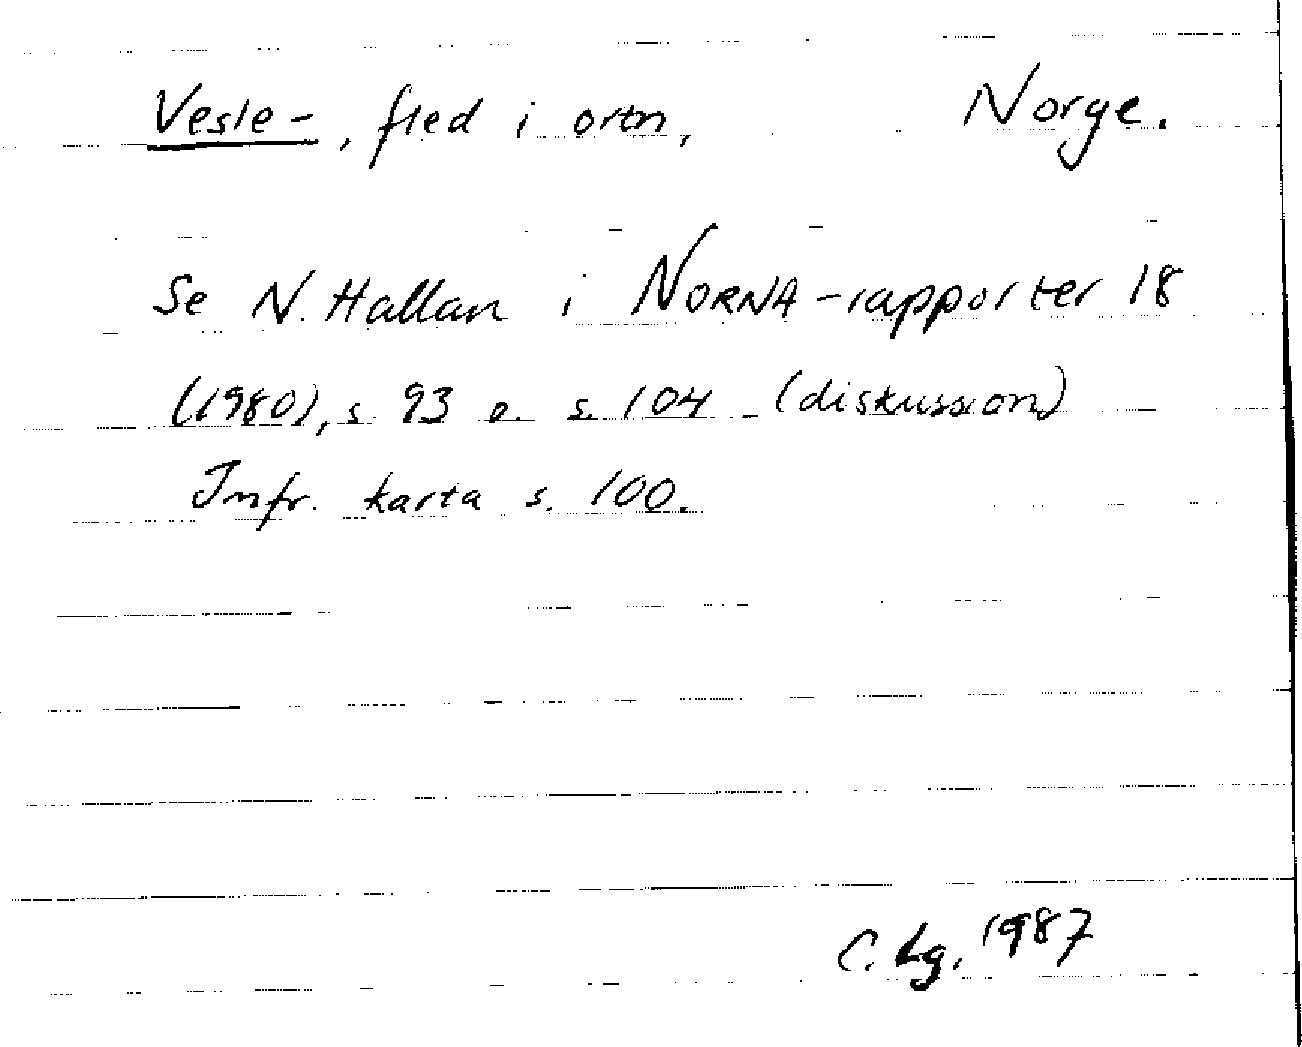 Vesle-, fled i ortn, Norge.
Se N. Hallan i NORNA-rapporter 18
(1980), s. 93 o. s. 104 (diskussion)
Jmfr. karta s. 100.
C. Lg. 1987